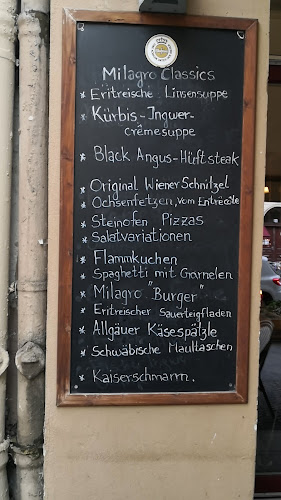 Milagro Classics
* Eritreische Linsensuppe
* Kürbis-Ingwer-
crêmesuppe
* Black Angus-Hüftsteak
* Original Wiener Schnitzel
* Ochsenfetzen, vom Entrecôte
* Steinofen Pizzas
* Salatvariationen
* Flammkuchen
* Spaghetti mit Garnelen
* Milagro "Burger"
* Eritreischer Sauerteigfladen
* Allgäuer Käsespätzle
* Schwäbische Maultaschen
* Kaiserschmarrn.